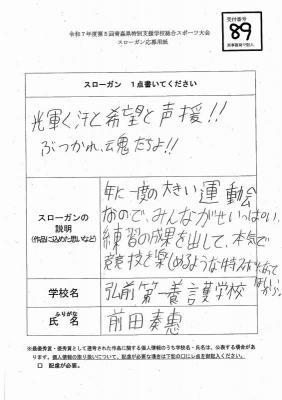 令和7年度第5回青森県特別支援学校総合スポーツ大会
スローガン応募用紙
受付番号
89
※事務局で記入
スローガン　１点書いてください
光輝く汗と希望と声援!!
ぶつかれ、魂たちよ!!
スローガンの
説明
(作品に込めた思いなど)
年に一度の大きい運動会
なので、みんながせいいっぱい、
練習の成果を出して、本気で
競技を楽しめるような特スポになって
ほしいから。
学校名
弘前第一養護学校
ふりがな
氏　名
前田奏恵
※最優秀賞・優秀賞として選考された作品に関する個人情報のうち学校名・氏名は、公表する場合があ
ります。個人情報の取り扱いについて、配慮が必要な場合は下記の口にレ点を御記入ください。
□　配慮が必要。